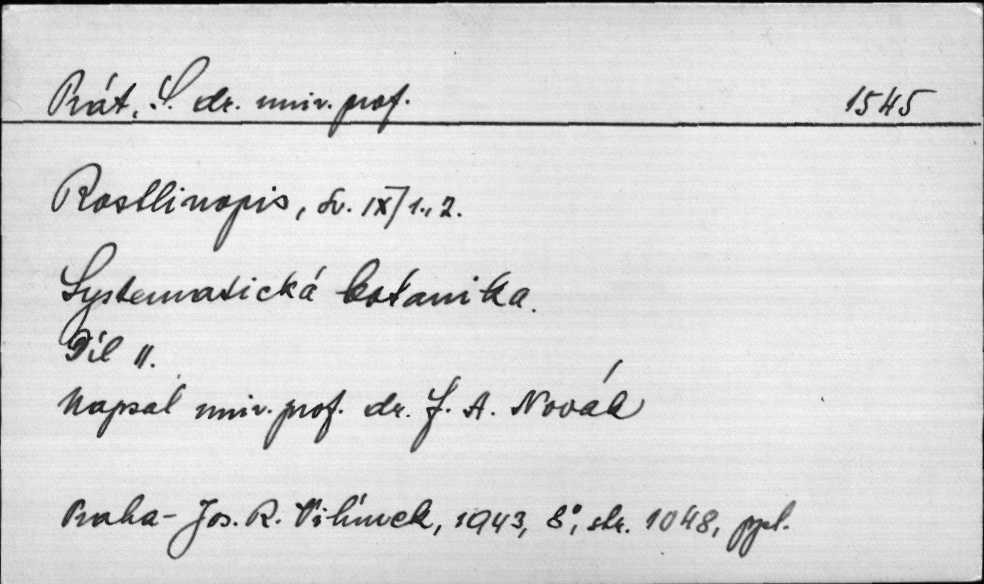 Prát, S. dr. univ. prof. 1545
Rostlinopis, sv. IX/1., 2.
Systematická botanika.
Díl II.
Napsal univ. prof. dr. F. A. Novák
Praha - Jos. R. Vilímek, 1943, 8°, str. 1048, ppl.